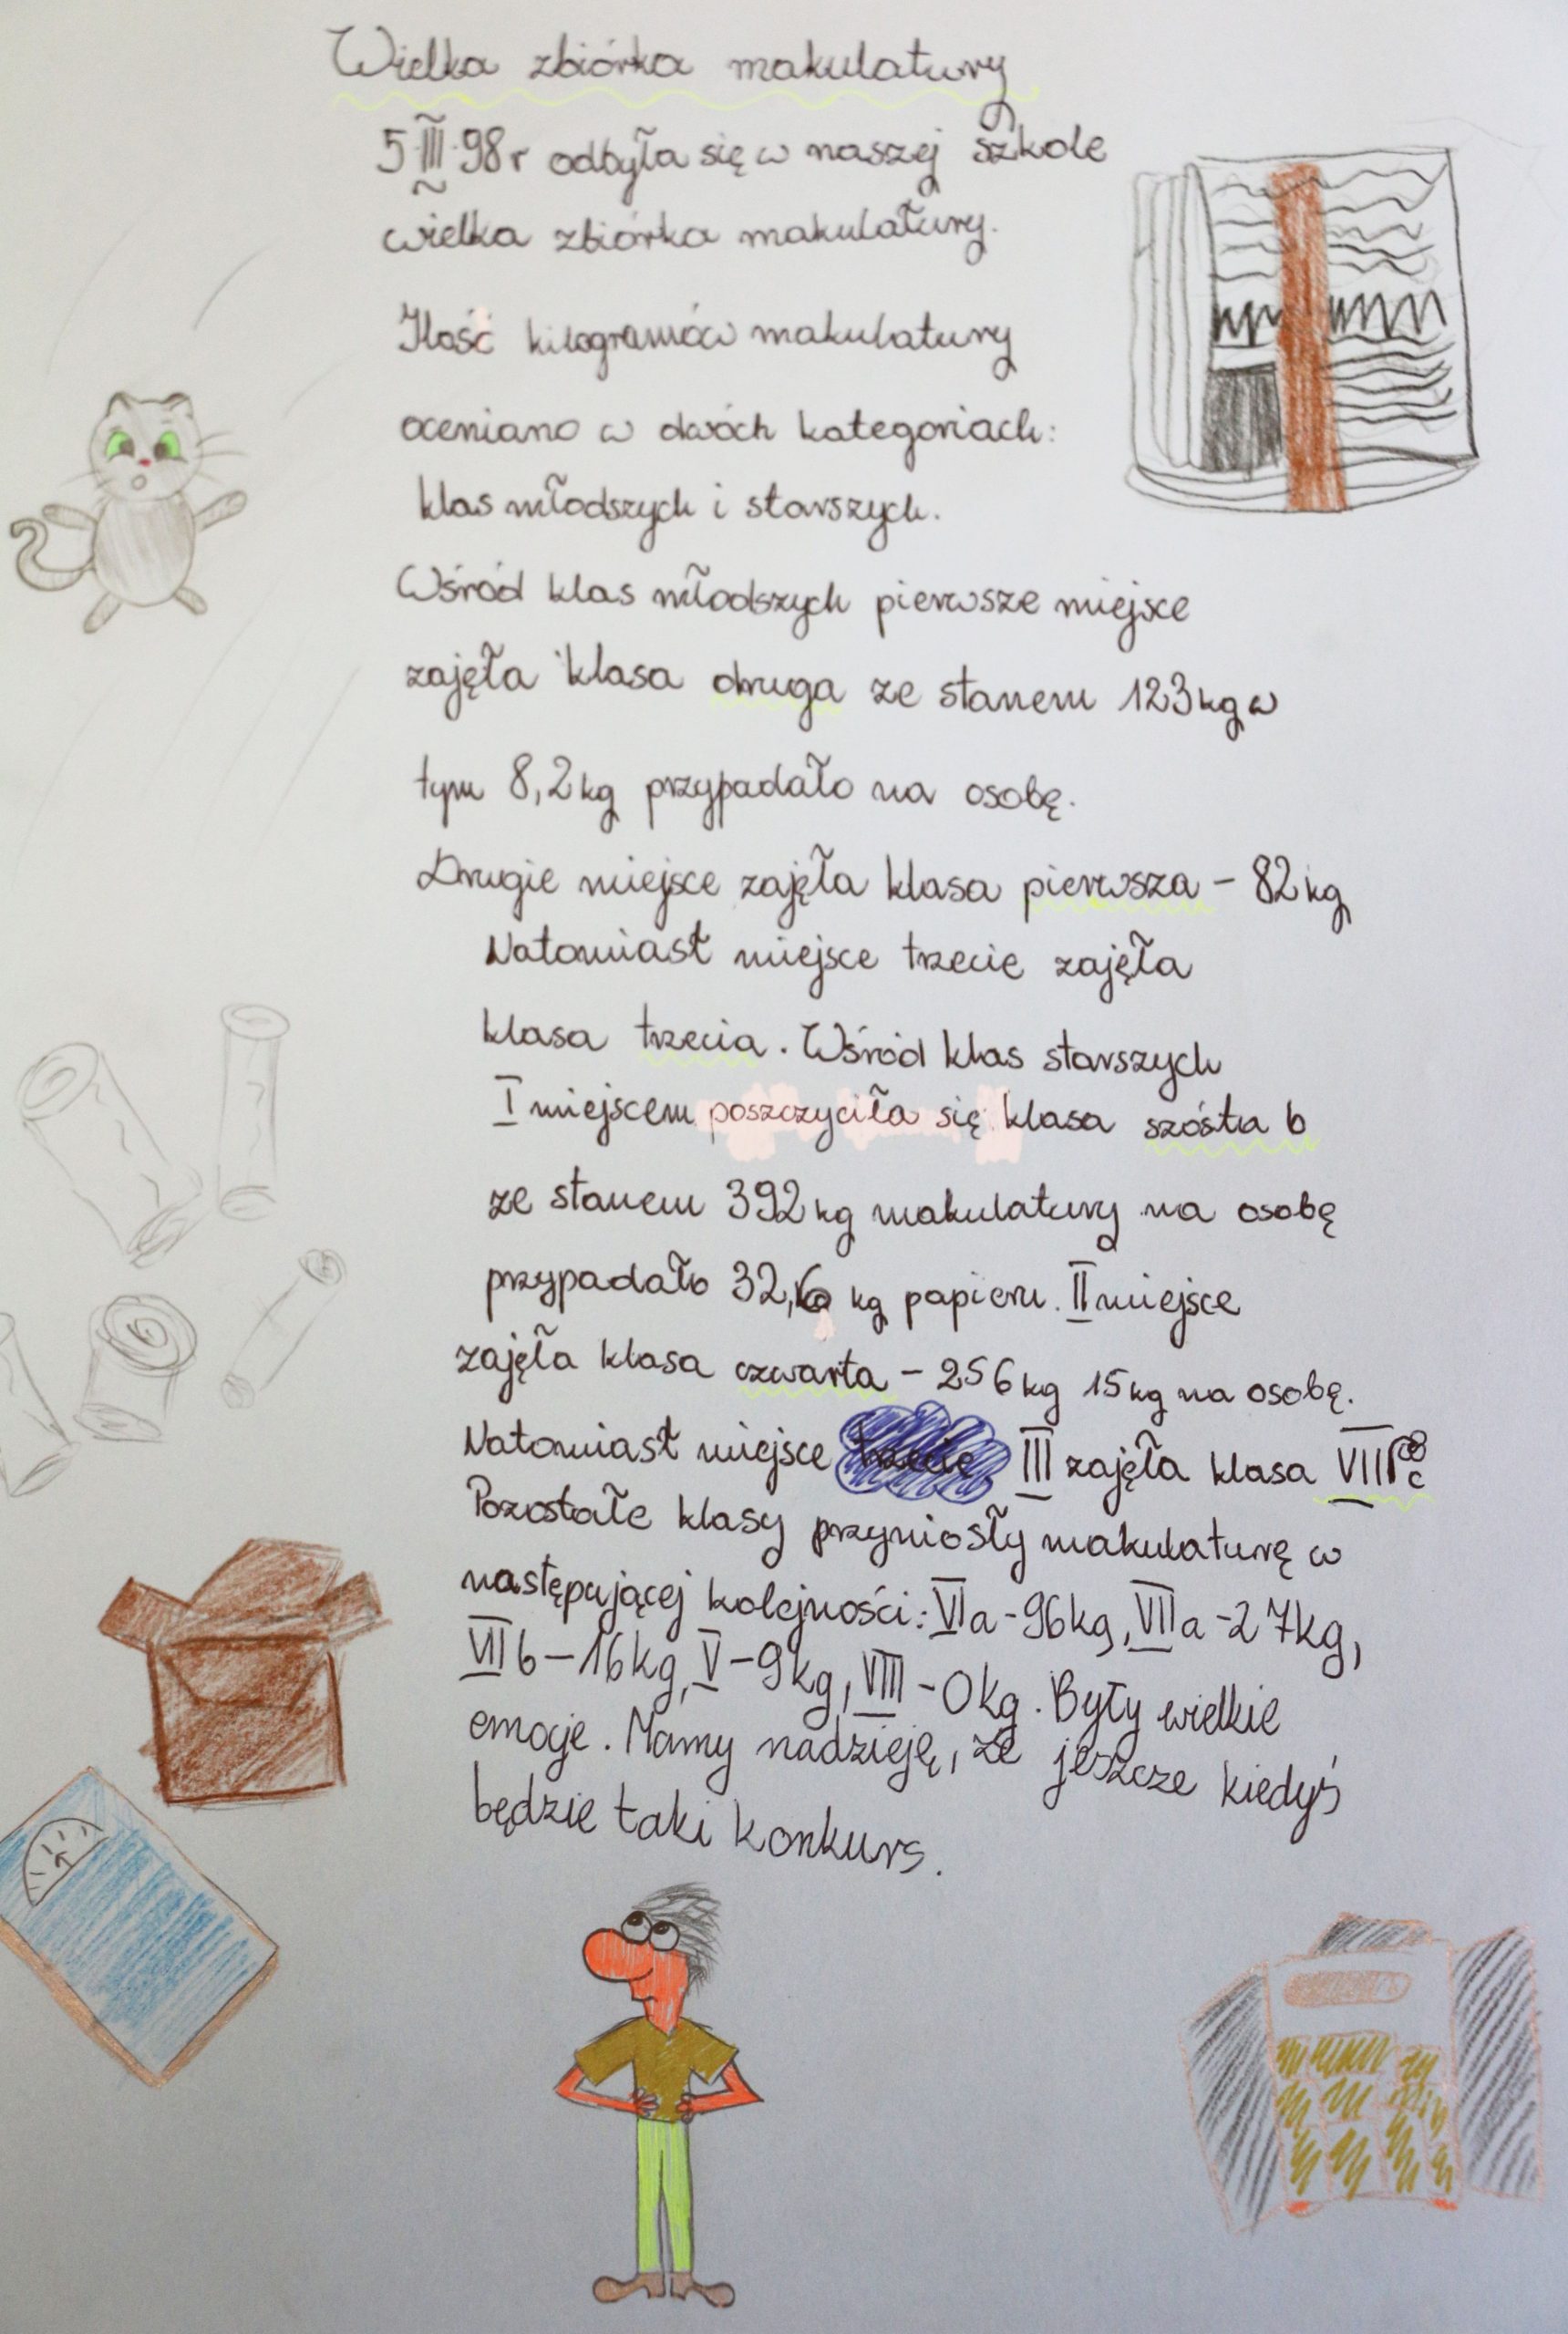 Wielka zbiórka makulatury
5 III 98r odbyła się w naszej szkole
wielka zbiórka makulatury.
Ilość kilogramów makulatury
oceniano w dwóch kategoriach:
klas młodszych i starszych.
Wśród klas młodszych pierwsze miejsce
zajęła klasa druga ze stanem 123kg w
tym 8,2kg przypadało na osobę.
Drugie miejsce zajęła klasa pierwsza - 82kg
Natomiast miejsce trzecie zajęła
klasa trzecia. Wśród klas starszych
I miejscem poszczyciła się klasa szósta b
ze stanem 392kg makulatury na osobę
przypadało 32,6 kg papieru. II miejsce
zajęła klasa czwarta - 256kg 15kg na osobę.
Natomiast miejsce trzecie III zajęła klasa VII c
Pozostałe klasy przyniosły makulaturę w
następującej kolejności: VIa - 96kg, VIIa - 27kg,
VIIb - 16kg, V - 9kg, VIII - 0kg. Były wielkie
emocje. Mamy nadzieję, że jeszcze kiedyś
będzie taki konkurs.